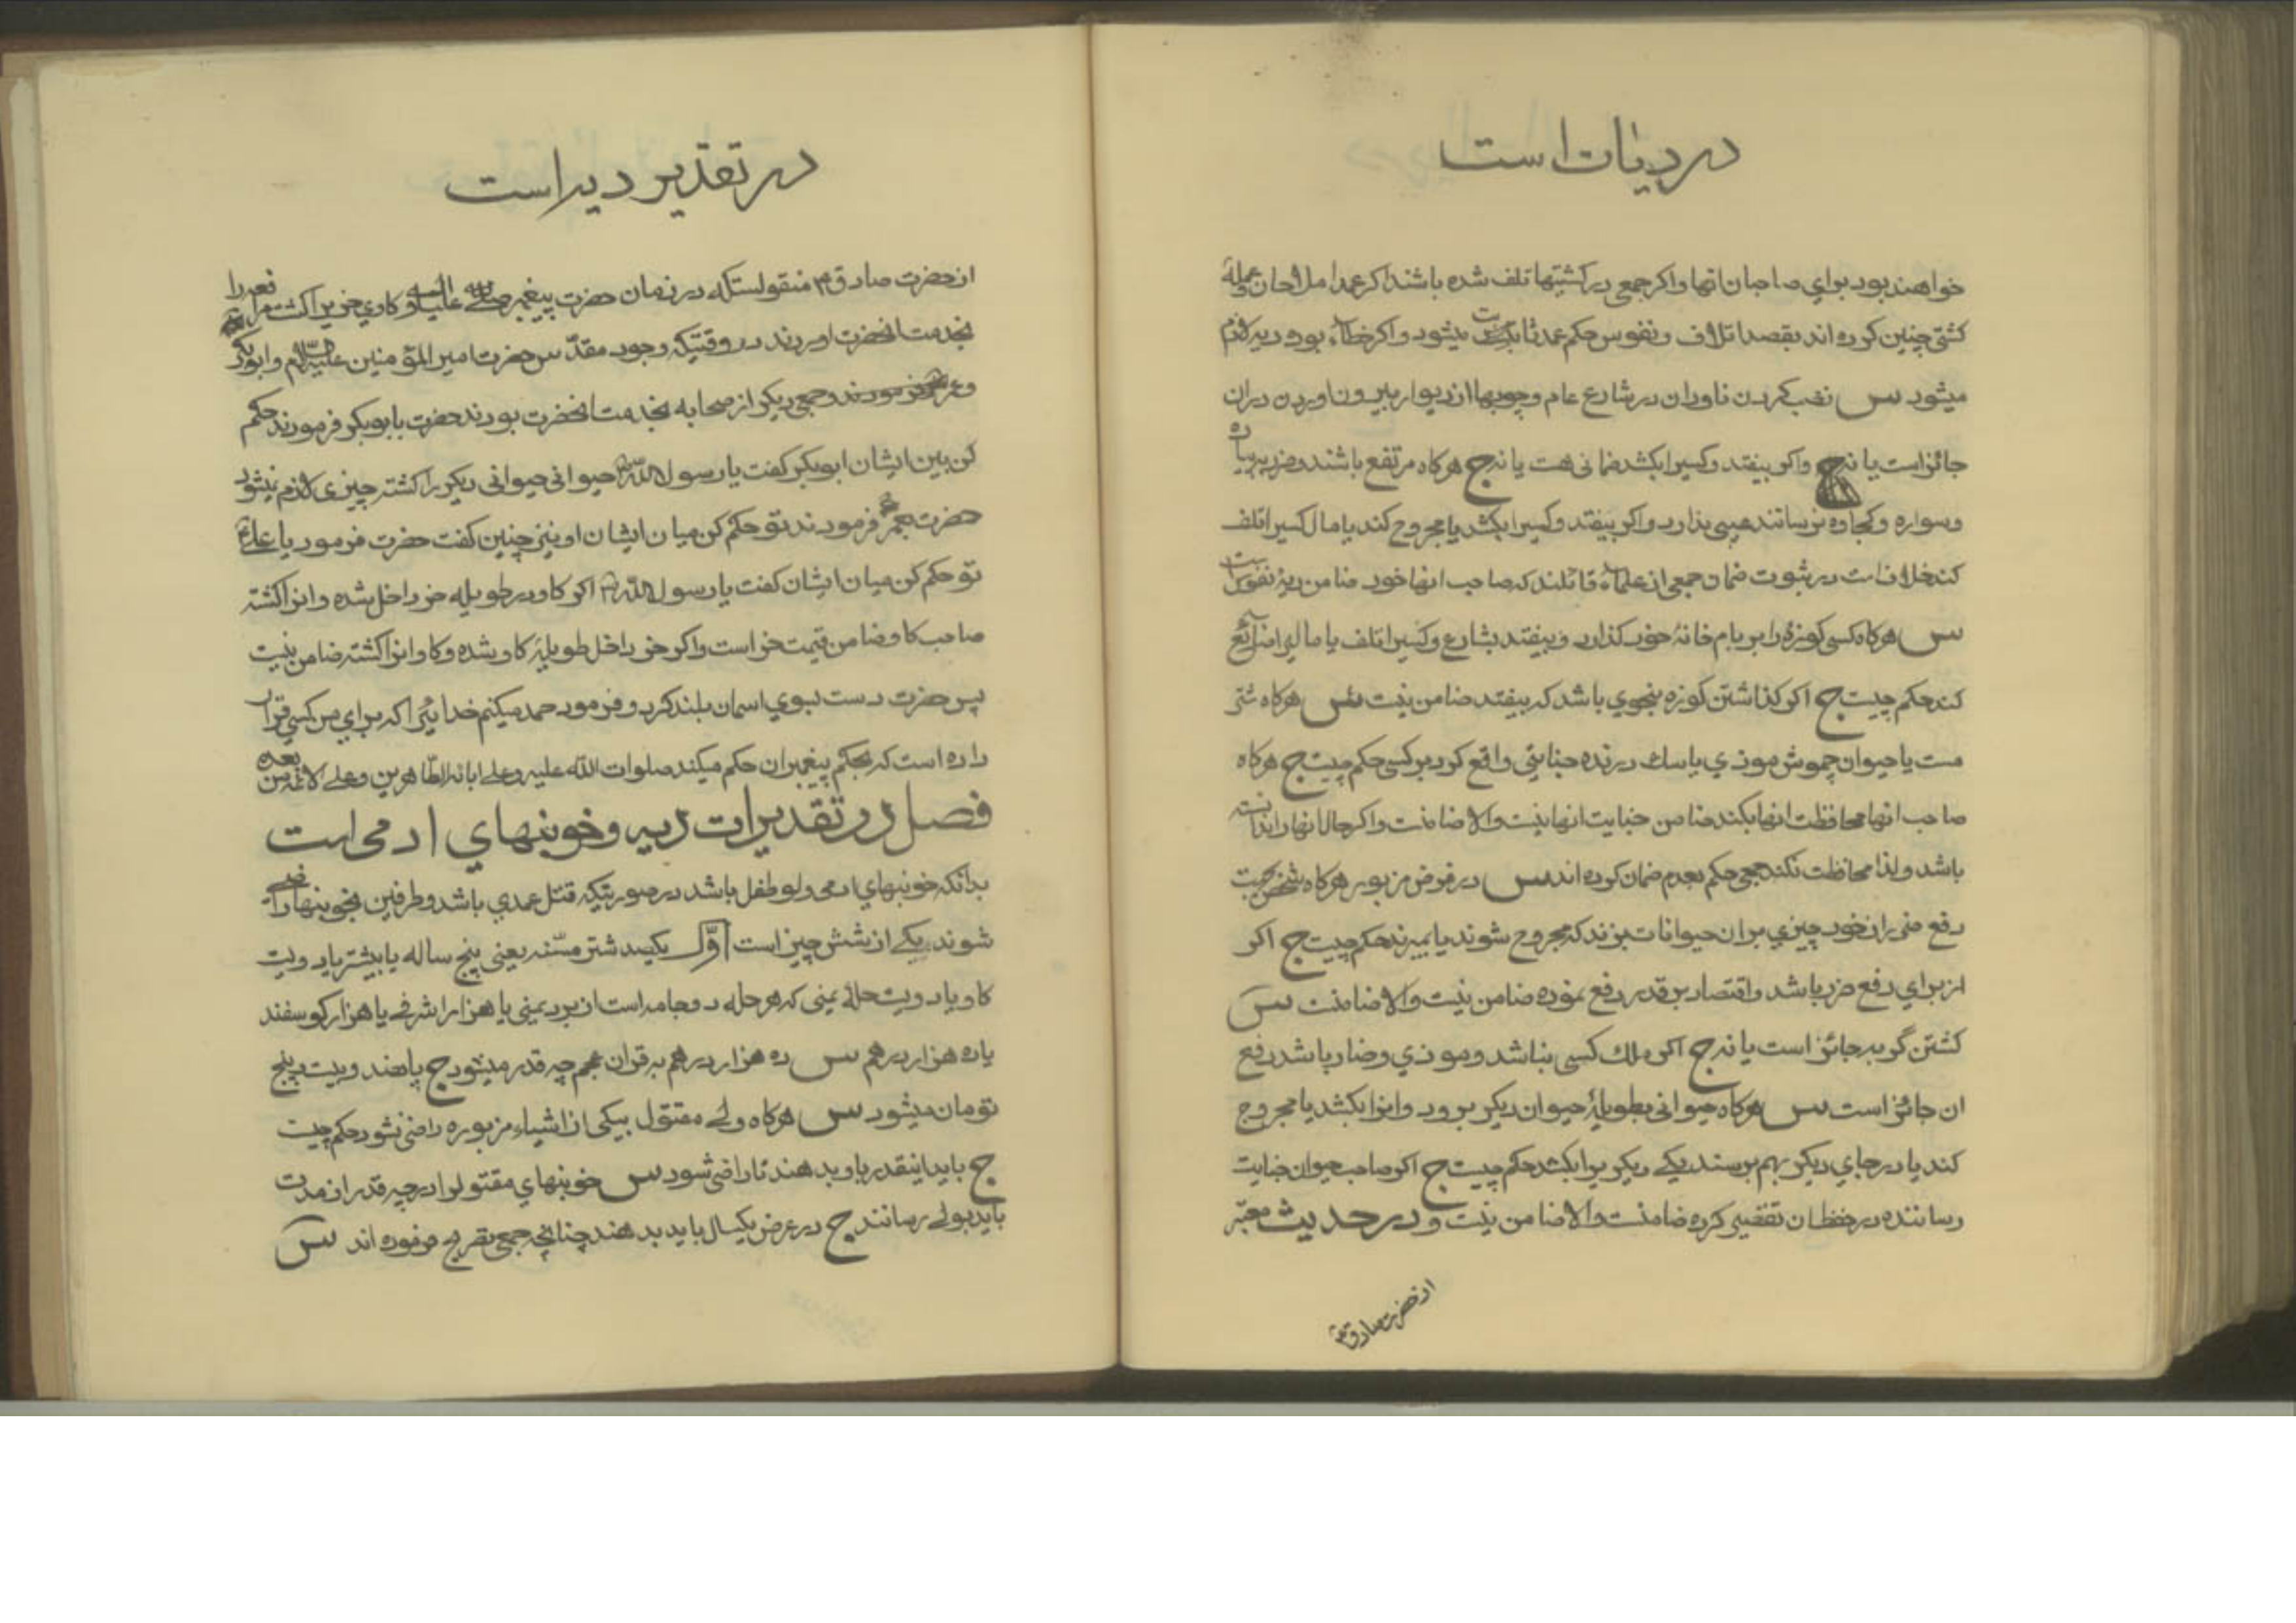 در دیات است
خواهند بود برای صاحبان انها و اکر جمعی در کشتیها تلف شده باشند اکر عمدا ملاحان و عمله
کشتی چنین کرده اند بقصد اتلاف و نفوس حکم عمد ثابت میشود و اکر خطاء بوده دیه لازم
میشود س نصب کردن ناودان در شارع عام و چوبها از دیوار بیرون اوردن در ان
جائز است یا نه ج و اکر بیفتد و کسیرا بکشد ضمانی هست یا نه ج هرکاه مرتفع باشند و ضرر بپیاده
و سواره و کجاوه نرسانند عیبی ندارد و اکر بیفتد و کسیرا بکشد یا مجروح کند یا مال کسیرا تلف
کند خلافست در ثبوت ضمان جمعی از علماء قائلند که صاحب انها خود ضامن دیه نفوس است
س هرکاه کسی کوزه را بر بام خانهٔ خود کذارد و بیفتد بشارع و کسیرا تلف یا مالی را ضائع
کند حکم چیست ج اکر کذاشتن کوزه بنحوی باشد که بیفتد ضامن نیست س هرکاه شتر
مست یا حیوان چموش موذی یا سك درنده جنایتی واقع کرد بر کسی حکم چیست ج هرکاه
صاحب انها محافظت انها بکند ضامن جنایت انها نیست والا ضامنست و اکر حال انها را ندانسته
باشد و لذا محافظت نکند جمعی حکم بعدم ضمان کرده اند س در فرض مزبور هرکاه شخص بجهت
دفع ضرر از خود چیزی بر ان حیوانات بزند که مجروح شوند یا بمیرند حکم چیست ج اکر
از برای دفع ضرر باشد و اقتصار بر قدر دفع نموده ضامن نیست والا ضامنست س
کشتن گربه جائز است یا نه ج اکر ملك کسی نباشد و موذی و ضار باشد دفع
ان جائز است س هرکاه حیوانی بطویلهٔ حیوان دیکر برود و انرا بکشد یا مجروح
کند یا در جای دیکر بهم برسند یکی دیکریرا بکشد حکم چیست ج اکر صاحب حیوان جنایت
رساننده در حفظ ان تقصیر کرده ضامنست والا ضامن نیست و در حدیث معتبر
از حضرت صادق ع
در تقدیر دیه است
از حضرت صادق ع منقولستکه در زمان حضرت پیغمبر صلی الله علیه و اله کاوی خریرا کشت مرافعه را
بخدمت انحضرت اوردند در وقتیکه وجود مقدس حضرت امیر المؤمنین علیه السلام و ابوبکر
و عمر و جمعی دیکر از صحابه بخدمت انحضرت بودند حضرت بابوبکر فرمودند حکم
کن بین ایشان ابوبکر کفت یا رسول الله ص حیوانی حیوانی دیکر را کشته چیزی لازم نمیشود
حضرت بعمر فرمودند تو حکم کن میان ایشان او نیز چنین کفت حضرت فرمود یا علی ع
تو حکم کن میان ایشان کفت یا رسول الله ص اکر کاو در طویله خر داخل شده و انرا کشته
صاحب کاو ضامن قیمت خر است و اکر خر داخل طویلهٔ کاو شده و کاو انرا کشته ضامن نیست
پس حضرت دست بسوی اسمان بلند کرد و فرمود حمد میکنم خدائیرا که برای من کسی قرار
داده است که بحکم پیغمبران حکم میکند صلوات الله علیه و علی ابائه الطاهرین و علی الائمة من بعده
فصل در تقدیرات دیه و خونبهای ادمی است
بدانکه خونبهای ادمی ولو طفل باشد در صورتیکه قتل عمدی باشد و طرفین بخونبها راضی
شوند یکی از شش چیز است اوّل یکصد شتر مسنّه یعنی پنج ساله یا بیشتر یا دویست
کاو یا دویست حلهٔ یمنی که هر حله دو جامه است از برد یمنی یا هزار اشرفی یا هزار کوسفند
یا ده هزار درهم س ده هزار درهم به قران عجم چه قدر میشود ج پانصد و بیست و پنج
تومان میشود س هرکاه ولی مقتول بیکی از اشیاء مزبوره راضی نشود حکم چیست
ج باید اینقدر باو بدهند تا راضی شود س خونبهای مقتولرا در چه قدر از مدت
باید بولی رسانند ج در عرض یکسال باید بدهند چنانچه جمعی تصریح فرموده اند س